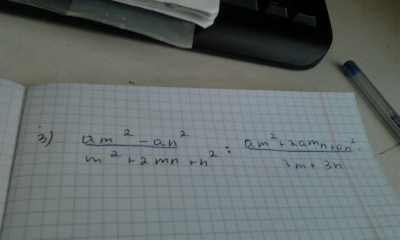 3) (am² - an²)/(m² + 2mn + n²) : (am² + 2amn + an²)/(3m + 3n)